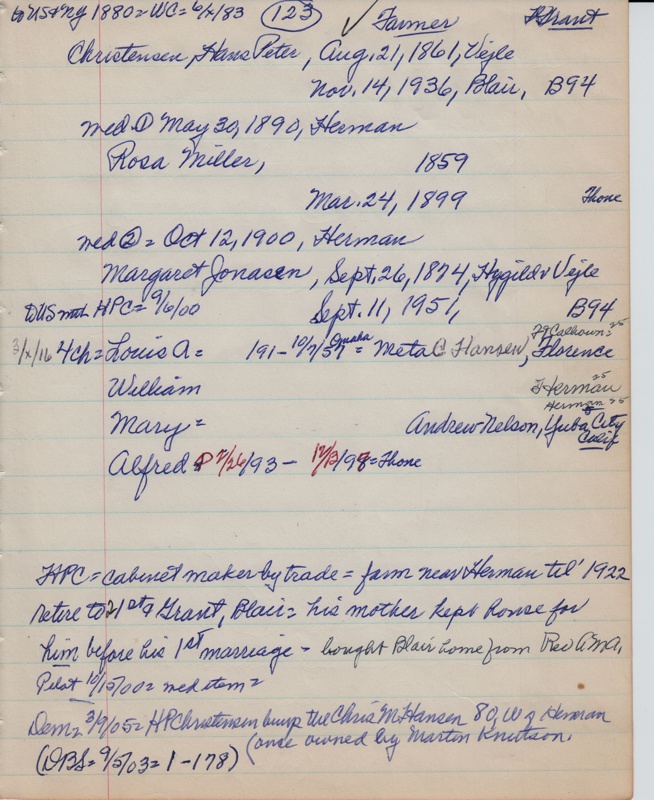 to US & Ny 1880 = WC = 6/x/83 (123) ✓ Farmer Grant
Christensen, Hans Peter, Aug. 21, 1861, Vejle
Nov. 14, 1936, Blair, B94
med ① May 30, 1890, Herman
Rosa Miller, 1859
Mar. 24, 1899 Thone
med ② = Oct 12, 1900, Herman
Margaret Jonasen, Sept. 26, 1874, Vejle
to US with HPC = 9/6/00 Sept. 11, 1951, B94
Ft Calhoun = 25
3/x/16 4 ch = Louis A = 191 - 10/7/57 Omaha = Meta C Hansen, Florence
William F Herman 25
Herman 25
Mary = Andrew Nelson, Yuba City Calif
Alfred P 2/26/93 - 12/13/98 = Thone
HPC = cabinet maker by trade = farm near Herman til' 1922
retire to 21st & Grant, Blair = his mother kept house for
him before his 1st marriage - bought Blair home from Rev AMA.
Pilot 10/15/00 = med item =
Dem = 3/9/05 = HP Christensen buys the Chris M Hansen 80, W of Herman
(once owned by Martin Knutson.
(DBS = 9/5/03 = 1-178)